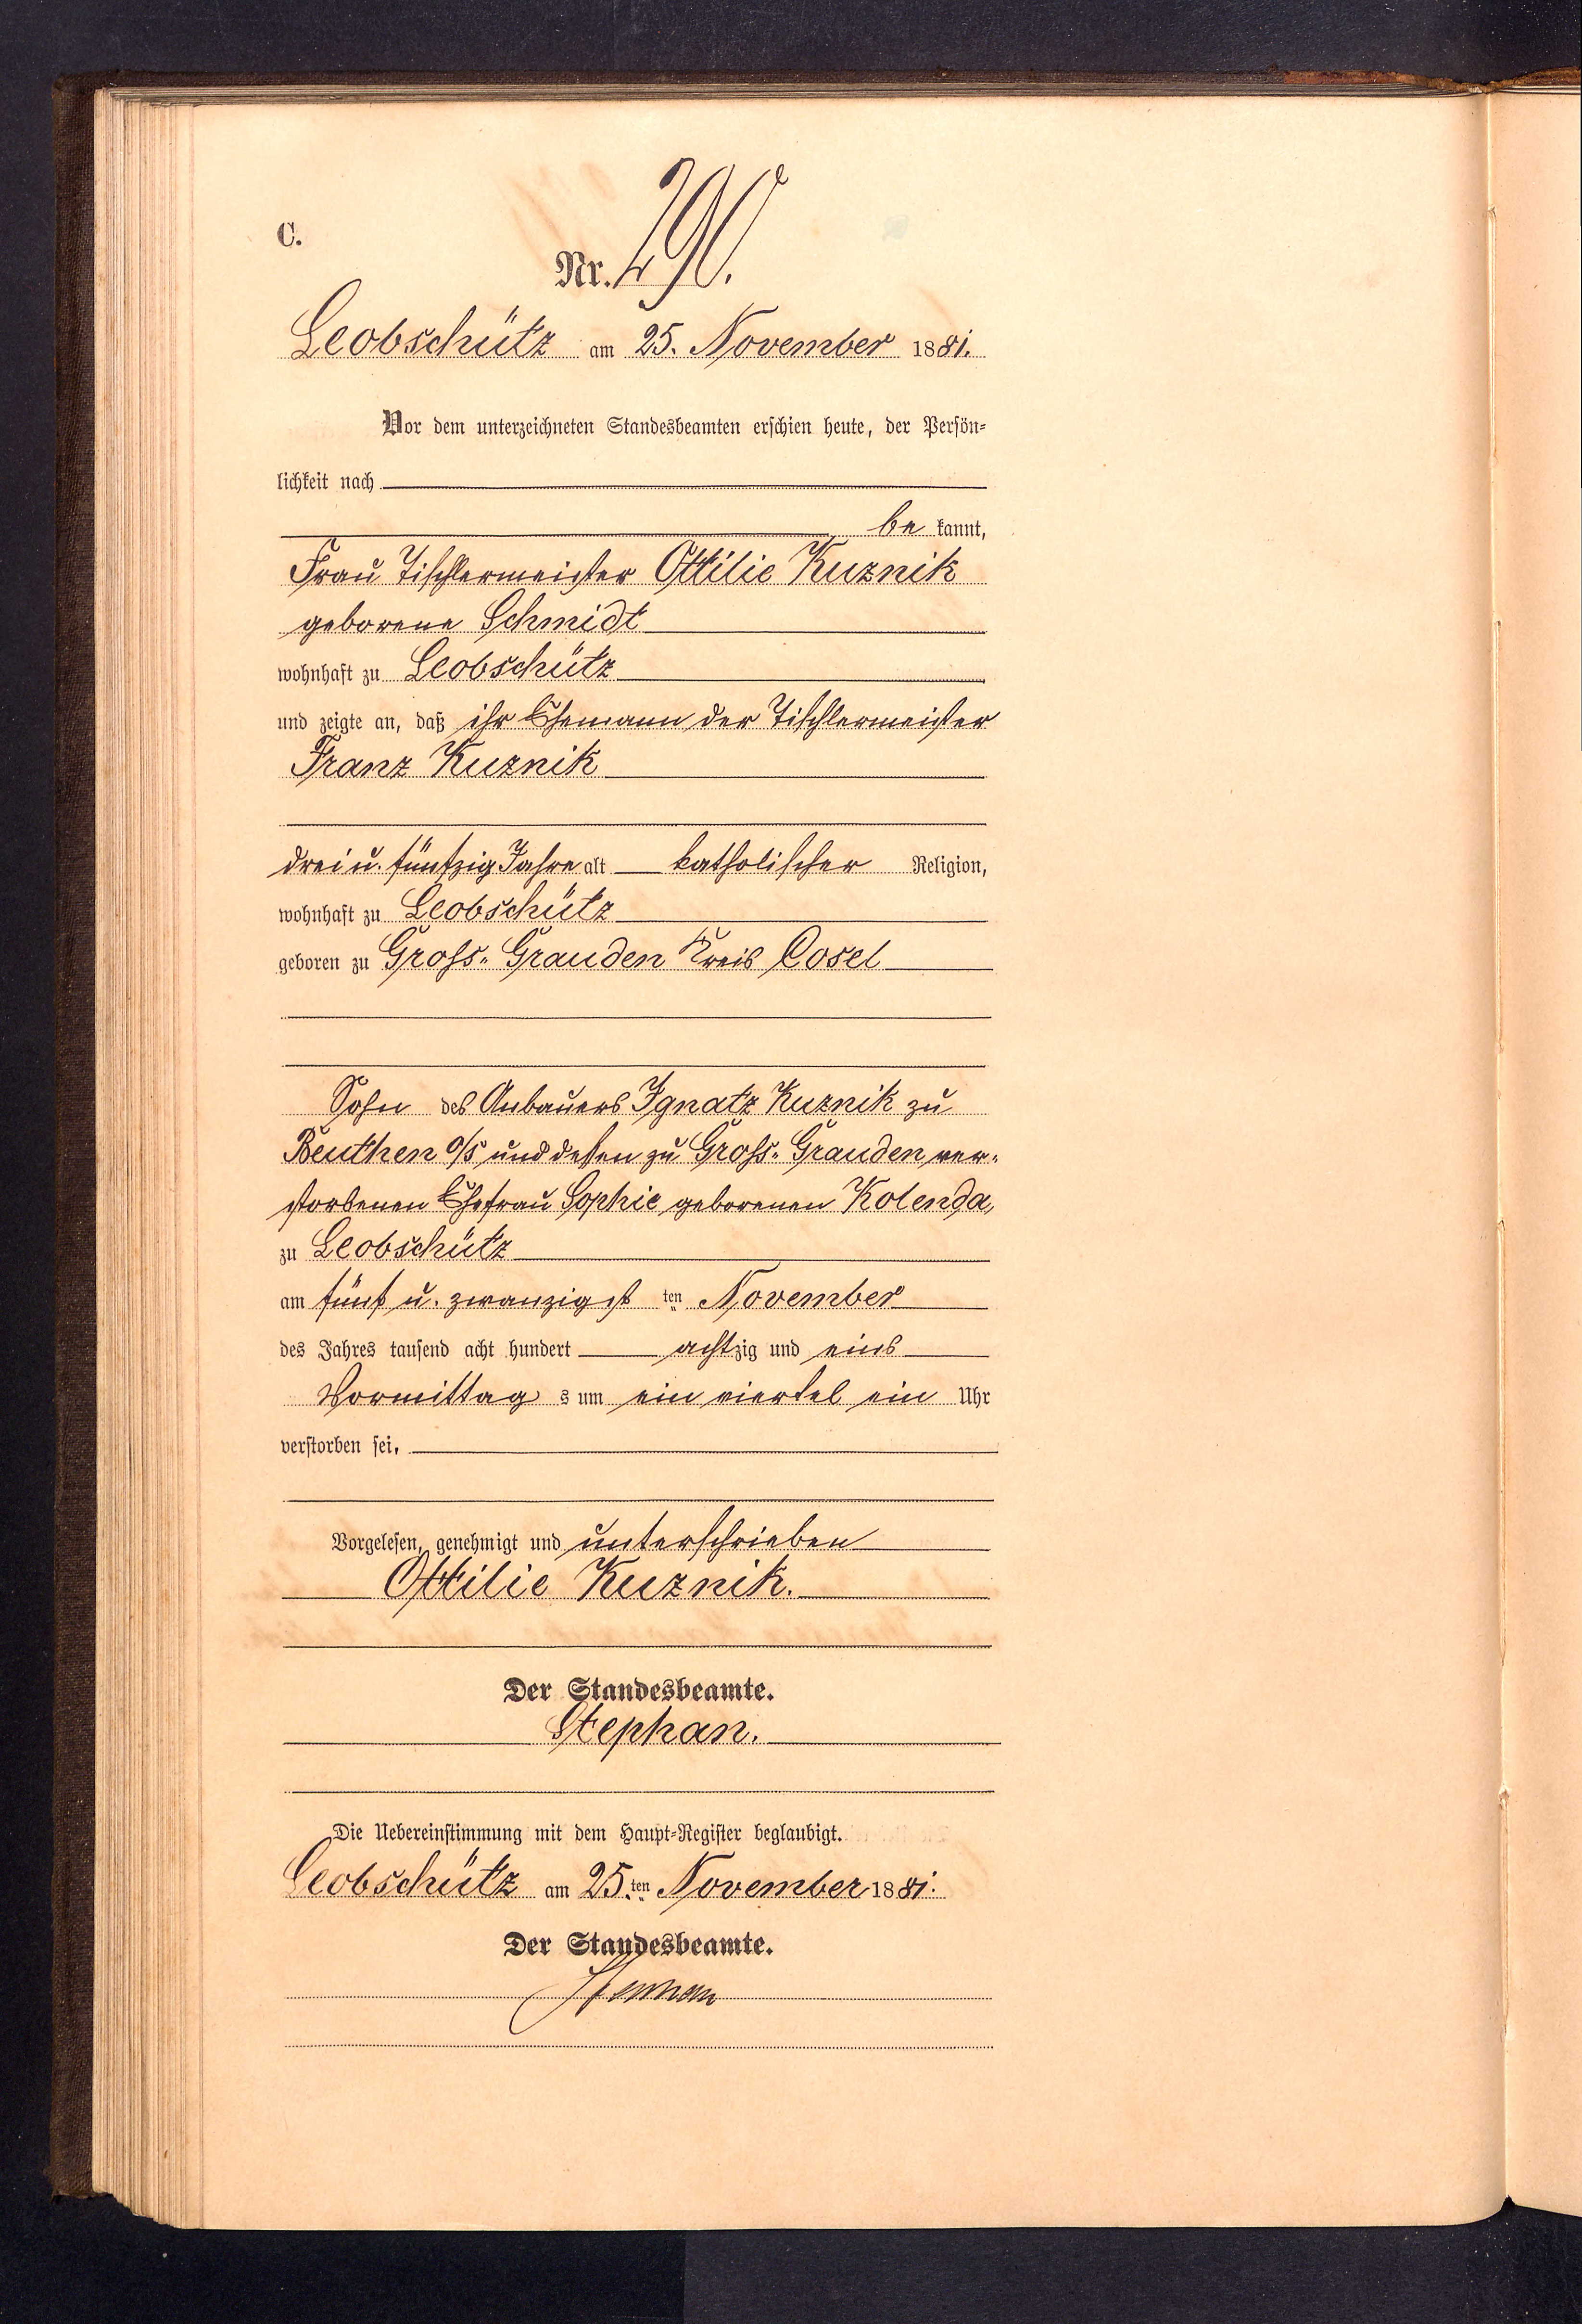 C.
Nr. 290.
Leobschütz am 25. November 1881.
Vor dem unterzeichneten Standesbeamten erschien heute, der Persön-
lichkeit nach
be kannt,
Frau Tischlermeister Ottilie Kuznik
geborene Schmidt
wohnhaft zu Leobschütz
und zeigte an, daß ihr Ehemann der Tischlermeister
Franz Kuznik
drei u. fünfzig Jahre alt katholischer Religion,
wohnhaft zu Leobschütz
geboren zu Gross-Grauden Kreis Cosel
Sohn des Anbauers Ignatz Kuznik zu
Beuthen O/S und dessen zu Gross-Grauden ver-
storbenen Ehefrau Sophie geborenen Kolenda,
zu Leobschütz
am fünf u. zwanzigst ten November
des Jahres tausend acht hundert achtzig und eins
Vormittag s um ein viertel ein Uhr
verstorben sei.
Vorgelesen, genehmigt und unterschrieben
Ottilie Kuznik.
Der Standesbeamte.
Stephan.
Die Uebereinstimmung mit dem Haupt-Register beglaubigt.
Leobschütz am 25. ten November 1881.
Der Standesbeamte.